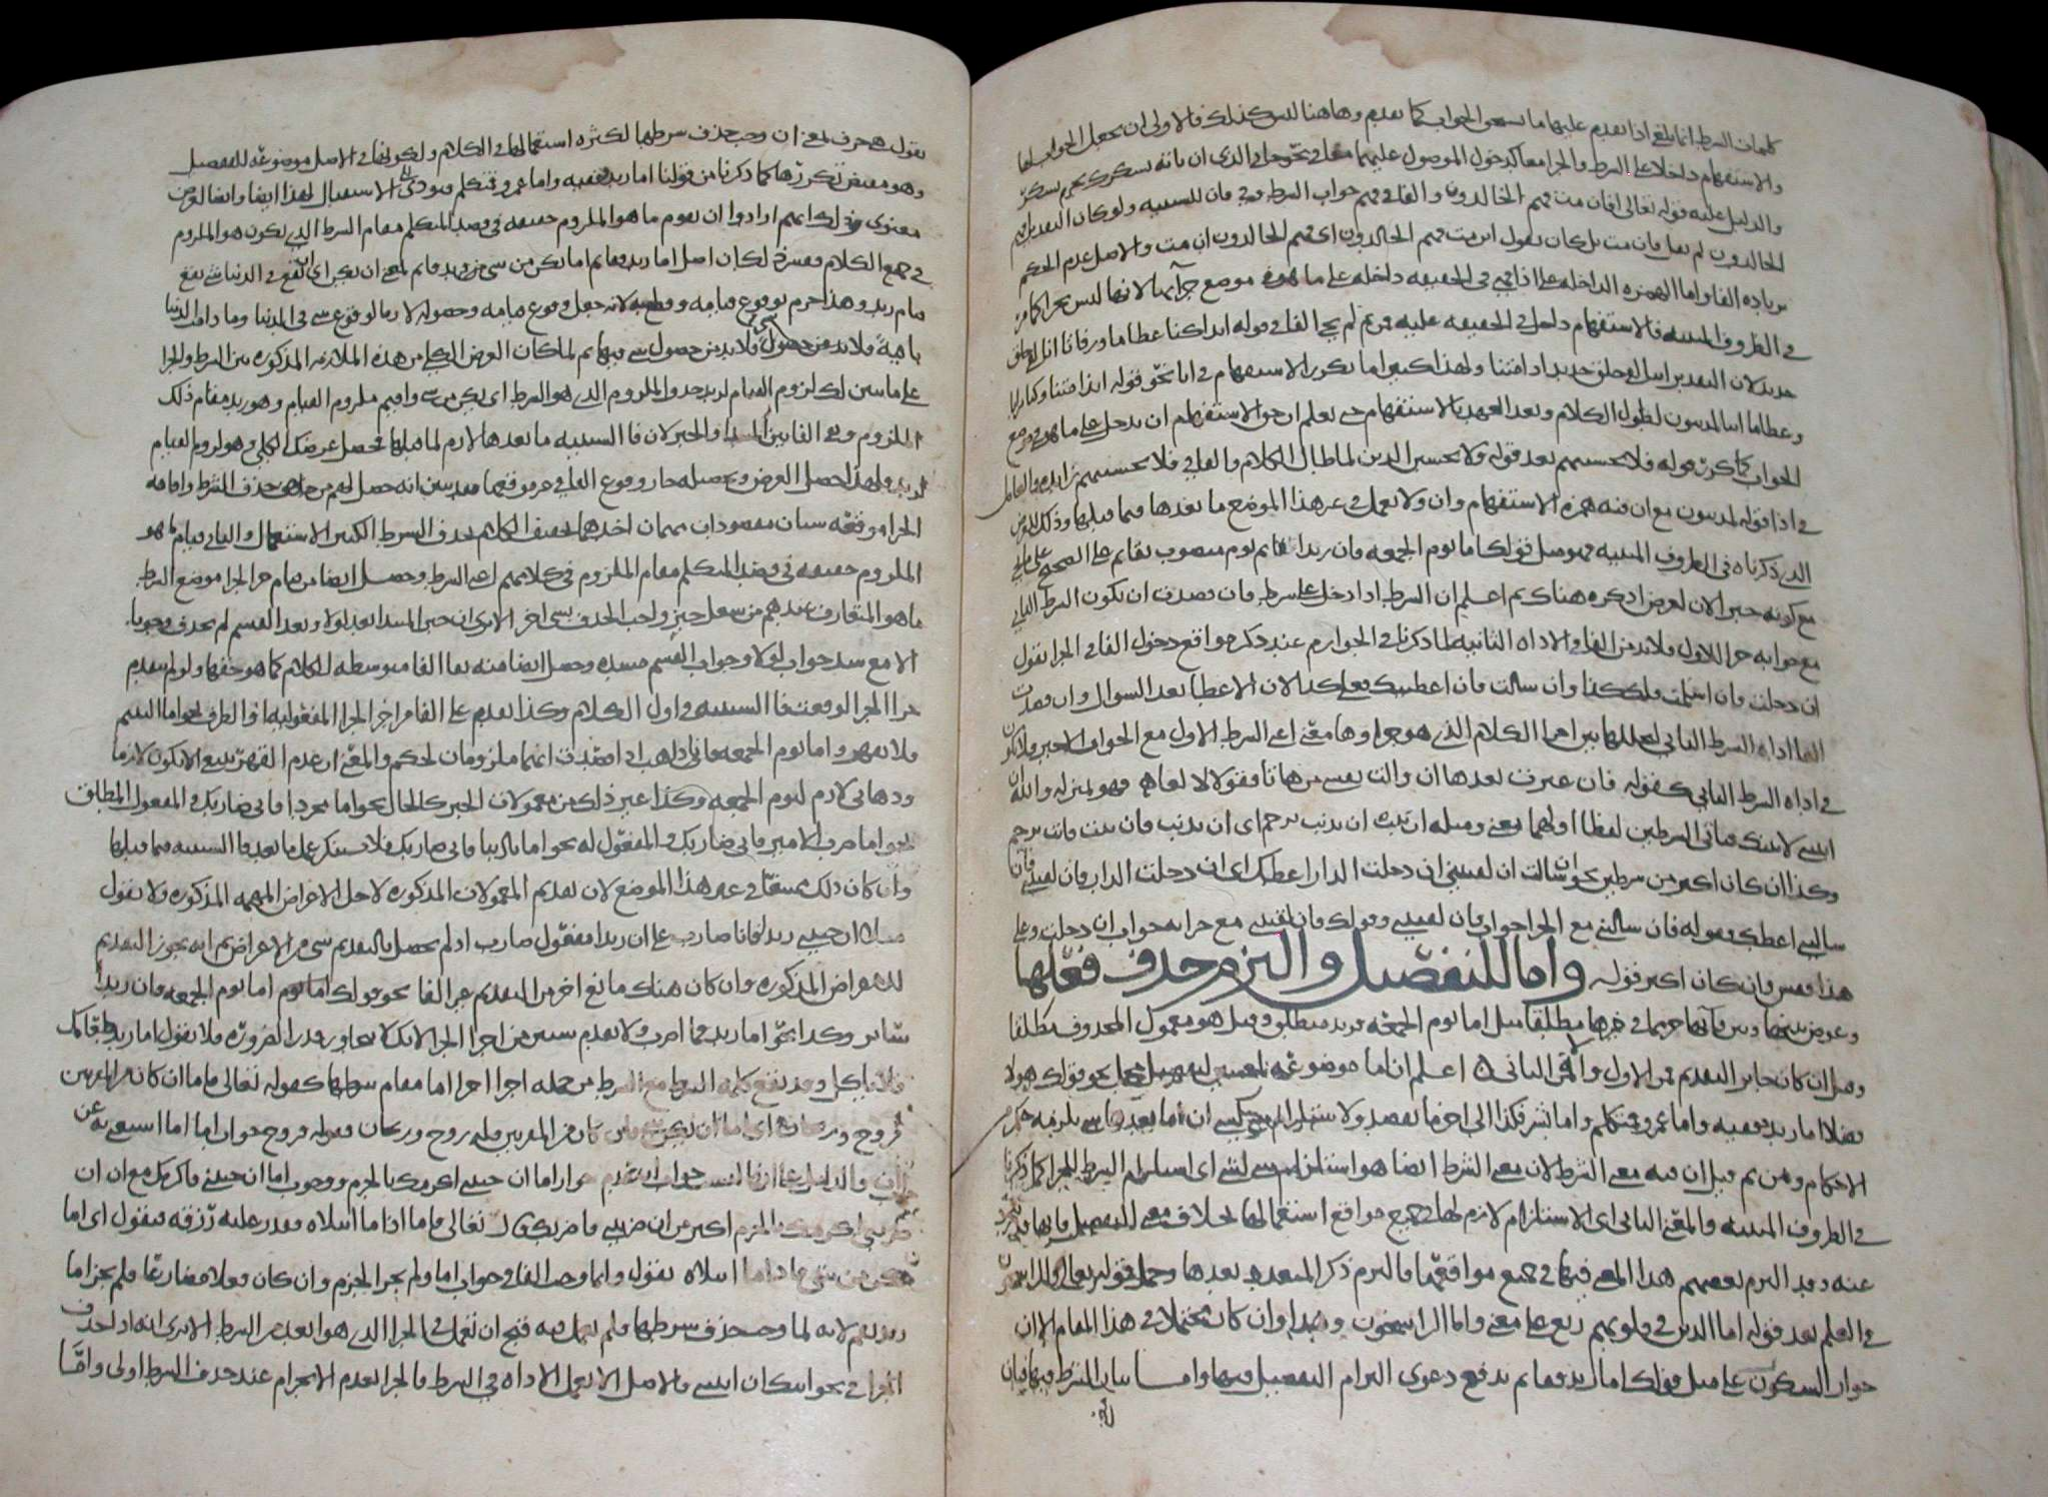 كلمات الشرط انما يلغى اذا تقدم عليها ما يستحق الجواب كما تقدم وهاهنا ليس كذلك فالاولى ان يجعل الجواب لها
والاستفهام داخلا على الشرط والجزا معا كدخول الموصول عليهما معا في نحو جاني الذي ان تاته يشكرك
والدليل عليه قوله تعالى افان مت فهم الخالدون والفا في فهم جواب الشرط وفي فان للسببيه ولو كان التقدير افهم
الخالدون لم يقل فان مت بل كان يقول ائن مت فهم الخالدون اى فهم الخالدون ان مت والاصل عدم الحكم
بزياده الفا واما الهمزه الداخله على اذا فهي في الحقيقه داخله على ما هو في موضع جزائها لانها ليس بجزا كما مر
في الظروف المبنيه فالاستفهام داخل في الحقيقه عليه ومن ثم لم يجى الفا في قوله ائذا كنا عظاما ورفاتا ائنا لفي خلق
جديد لان التقدير ائنا لفي خلق جديد اذا متنا ولهذا كثيرا ما يكرر الاستفهام في انا نحو قوله ائذا متنا وكنا ترابا
وعظاما ائنا لمدينون لطول الكلام وبعد العهد بالاستفهام حتى يعلم ان حق الاستفهام ان يدخل على ما هو في موضع
الجواب كما كرر قوله فلا تحسبنهم بعد قوله ولا تحسبن الذين لما طال الكلام والفا في فلا تحسبنهم زايده والعامل
في اذا قوله لمدينون مع ان فيه همزه الاستفهام وان ولا يعمل في غير هذا الموضع ما بعدها فيما قبلها وذلك للغرض
الذي ذكرناه في الظروف المبنيه
مع كونه خبرا لان لغرض اذكره هناك ثم اعلم ان الشرط اذا دخل على شرط فان قصدت ان يكون الشرط الثاني
مع جوابه جزا للاول فلا بد من الفا في الاداه الثانيه لما ذكرنا في الجوازم عند ذكر مواقع دخول الفا في الجزا تقول
ان دخلت فان سلمت فلك كذا وان سالت فان اعطيتك فعلي كذا لان الاعطا بعد السوال وان قصدت
الغا اداه الشرط الثاني لتخللها بين اجزا الكلام الذي هو جزاوها معنى اعني الشرط الاول مع الجواب الاخير فلا يكون
في اداه الشرط الثاني كقوله فان عثرت بعدها ان والت نفسي من هاتا فقولا لا لعا فهو بمنزله والله ان
اتيتني لا تينك فثاني الشرطين لفظا اولهما معنى ومثله ان تتب ان تذنب ترحم اى ان تذنب فان تتب ترحم
وكذا ان كان اكثر من شرطين نحو ان سالت ان لقيتني ان دخلت الدار اعطك اى ان دخلت الدار فان لقيتني فان
سالتني اعطك فقوله فان سالتني مع الجزا جواب فان لقيتني وقولك فان لقيتني مع جزائه جواب ان دخلت وعلى
هذا فقس فان كان اكثر قوله واما للتفصيل والتزم حذف فعلها
وعوض بينها وبين فائها جزء مما في حيزها مطلقا مثل اما يوم الجمعه فزيد منطلق وقيل هو معمول المحذوف مطلقا
وقيل ان كان جايز التقديم فمن الاول والا فمن الثاني اعلم ان اما موضوعه لمعنيين لتفصيل مجمل نحو قولك هولا
فضلا اما زيد ففقيه واما عمرو فمتكلم واما بشر فكذا الى اخر ما تقصد ولاستلزام شي لشي اى ان ما بعدها شي يلزمه حكم من
الاحكام ومن ثم قيل ان فيه معنى الشرط لان معنى الشرط ايضا هو استلزام شي لشي اى استلزام الشرط للجزا كما ذكرنا
في الظروف المبنيه والمعنى الثاني اى الاستلزام لازم لها في جميع مواقع استعمالها بخلاف معنى التفصيل فانها قد تتجرد
عنه وقد التزم بعضهم هذا المعنى فيها في جميع مواقعها والتزم ذكر المتعدد بعدها وحمل قوله تعالى والراسخون
في العلم بعد قوله اما الذين في قلوبهم زيغ على معنى واما الراسخون وهذا وان كان محتملا في هذا المقام الا ان
جواز السكوت على مثل قولك اما زيد فقايم يدفع دعوى التزام التفصيل فيها واما بيان الشرط فيها فبان
تقول هي حرف بمعنى ان وجب حذف شرطها لكثره استعمالها في الكلام ولكونها في الاصل موضوعه للتفصيل
وهو مقتض تكررها كما ذكرنا من قولنا اما زيد ففقيه واما عمرو فمتكلم فيودى الى الاستثقال لهذا ايضا وايضا لغرض
معنوى وذلك انهم ارادوا ان يقوم ما هو الملزوم حقيقه في قصد المتكلم مقام الشرط الذي يكون هو الملزوم
في جميع الكلام وتفسير ذلك ان اصل اما زيد فقايم اما يكن من شي فزيد قايم يعني ان يكن اى ان يقع في الدنيا شي يقع
قيام زيد وهذا جزم بوقوع قيامه وقطع به لانه جعل وقوع قيامه وحصوله لازما لوقوع شي في الدنيا وما دامت الدنيا
باقية فلا بد من حصول شي فيها ثم لما كان الغرض الكلي من هذه الملازمه المذكوره بين الشرط والجزا
لزوم القيام لزيد حذف الملزوم الذي هو الشرط اى يكن من شي واقيم ملزوم القيام وهو زيد مقام ذلك
الملزوم وبقي الفا بين المبتدا والخبر لان فا السببيه ما بعدها لازم لما قبلها فحصل غرضك الكلي وهو لزوم القيام
لزيد فلهذا الغرض وتحصيله جاز وقوع الفا في غير موقعها فقد تبين انه حصل لهم من حذف الشرط واقامه
الجزا موقعه شيان مقصودان مهمان احدهما تخفيف الكلام بحذف الشرط الكثير الاستعمال والثاني قيام ما هو
الملزوم حقيقه في قصد المتكلم مقام الملزوم في كلامهم اعني الشرط وحصل ايضا من قيام جزا الجزا موضع الشرط
ما هو المتعارف عندهم من شغل حيز واجب الحذف بشي اخر الا ترى ان خبر المبتدا بعد لولا وبعد القسم لم يحذف وجوبا
الا مع سد جواب لولا وجواب القسم مسده وحصل ايضا منه بقا الفا متوسطه للكلام كما هو حقها ولو لم يتقدم
جزا الجزا لوقعت فا السببيه في اول الكلام وكذا تقدم على الفا من اجزا الجزا المفعول به او الظرف نحو اما اليتيم
فلا تقهر واما يوم الجمعه فاني ذاهب اذا قصدت انهما ملزومان لحكم والمعنى ان عدم القهر ينبغي ان يكون لازما
وذهابي لازم ليوم الجمعه وكذا غير ذلك من معمولات الخبر كالحال نحو اما مجردا فاني ضاربك والمفعول المطلق
نحو اما ضرب الامير فاني ضاربك والمفعول له نحو اما تاديبا فاني ضاربك فلا يستنكر عمل ما بعد فا السببيه فيما قبلها
وان كان ذلك ممتنعا في غير هذا الموضع لان تقديم المعمولات المذكوره لاجل الاغراض المهمه المذكوره فلا يقول
مثلا ان جيتني زيدا فانا ضارب على ان زيدا مفعول ضارب اذ لم يحصل بالتقديم شي من الاغراض ثم انه يجوز التقديم
للاغراض المذكوره وان كان هناك مانع اخر من التقديم غير الفا نحو قولك اما يوم الجمعه فان زيدا
ساير وكذا نحو اما زيد فما اضرب ولا يقدم شيين من اجزا الجزا لانك لا تجاوز قدر الضروره فلا تقول اما زيد طعامك
فلا ياكل وقد يقع كلمه الشرط مع الشرط من جمله اجزا الجزا مقام شرطها كقوله تعالى فاما ان كان من المقربين
فروح وريحان اى اما ان يكن شي فان كان من المقربين فله روح وريحان فقوله فروح جواب اما استغنى به عن
جواب ان والدليل على انها ليست جواب ان عدم جواز اما ان جيتني اكرمك بالجزم ووجوب اما ان جيتني فاكرمك مع ان ان
ضربتني اكرمك بالجزم اكثر من ان ضربتني فاضربك قال تعالى فاما اذا ما ابتلاه فقدر عليه رزقه فيقول اى اما
يكن من شي فاذا ما ابتلاه يقول وانما وجب الفا في جواب اما ولم يجز الجزم وان كان فعلا مضارعا فلم يجز اما
زيد يقم لانه لما وجب حذف شرطها فلم يعمل فيه قبح ان تعمل في الجزا الذي هو ابعد من الشرط الا ترى انه اذا حذف
الجزا في نحو اتيك ان اتيتني فالاصل الا يعمل الاداه في الشرط فالجزا بعدم الانجزام عند حذف الشرط اولى واما